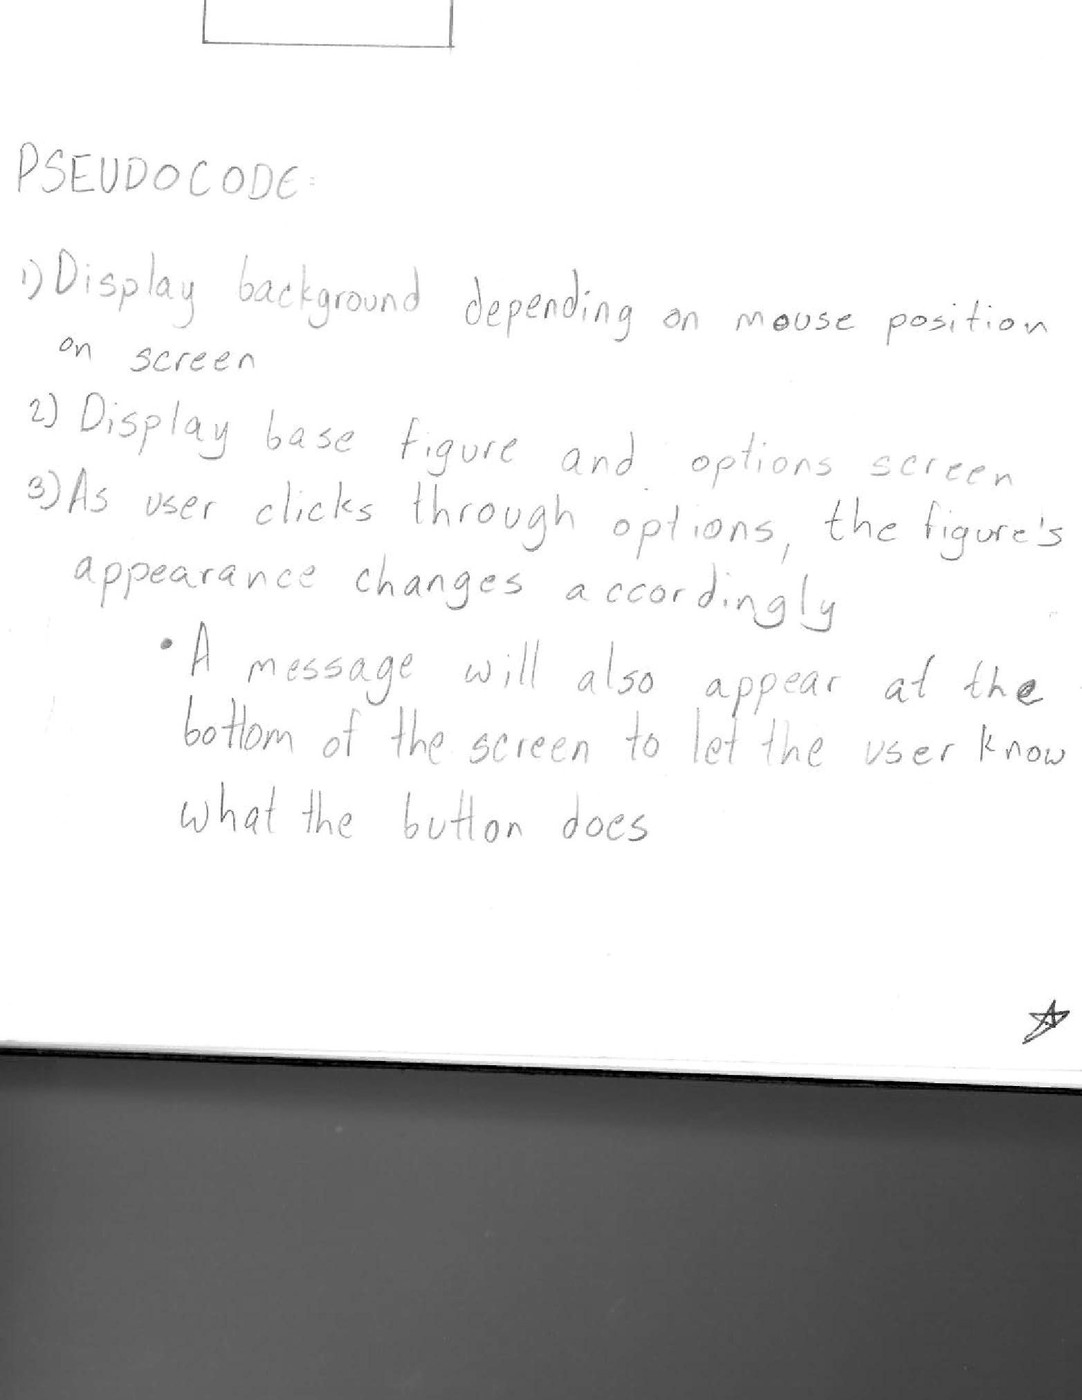 PSEUDOCODE:
1) Display background depending on mouse position
on screen
2) Display base figure and options screen
3) As user clicks through options, the figure's
appearance changes accordingly
• A message will also appear at the
bottom of the screen to let the user know
what the button does